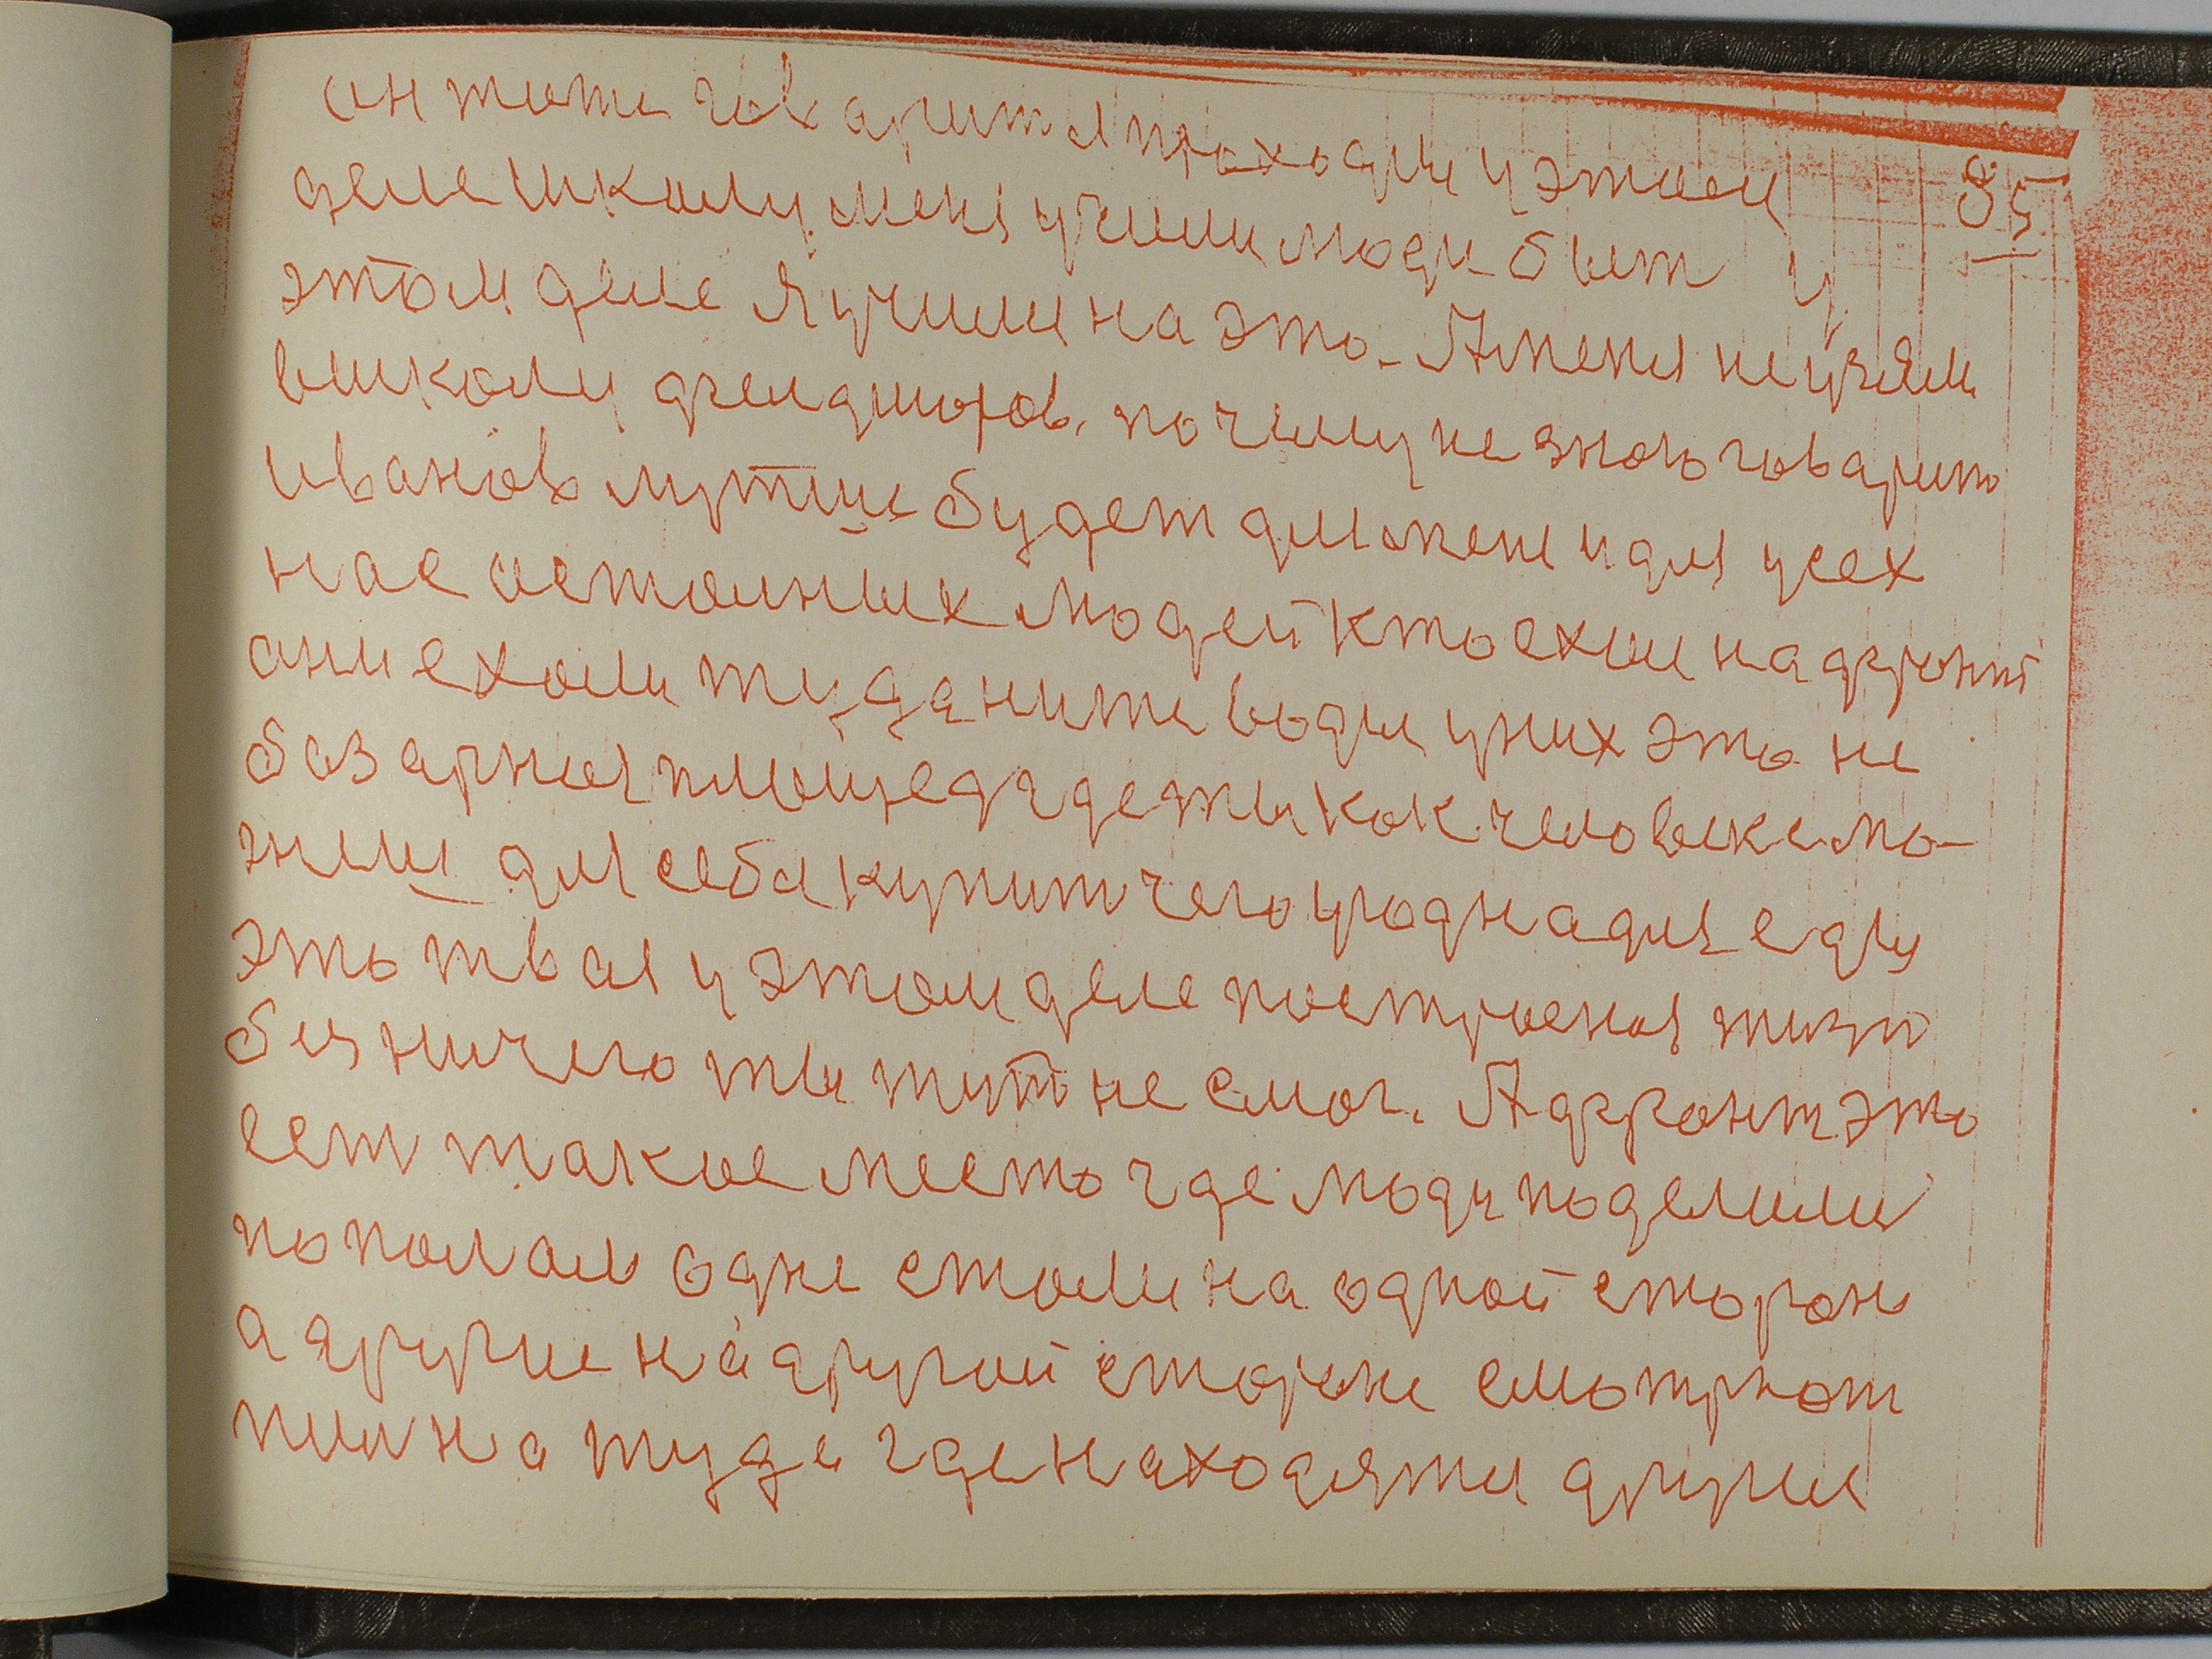 85
он тоже говарит я проходил у этом
деле школу меня учили люди быт у
этом деле я учили на это. А меня не узяли
в школу фельдшоров. почему не знаю говарит
Иванов лутше будет для мене и для усех
нас остолних людей кто ехали на фронт
ани ехоли туда ниже воды у них это не
базарная площедь где ты как человеке мо-
жиш для себя купит чего угодна для еды
это твая у этом деле построеная жизн
без ничего ты тут не смог. А фронт это
ест такое место где люди поделили
пополам одне столи на одной сторон
а другие на другой стороне смотрют
туда где находяти другие